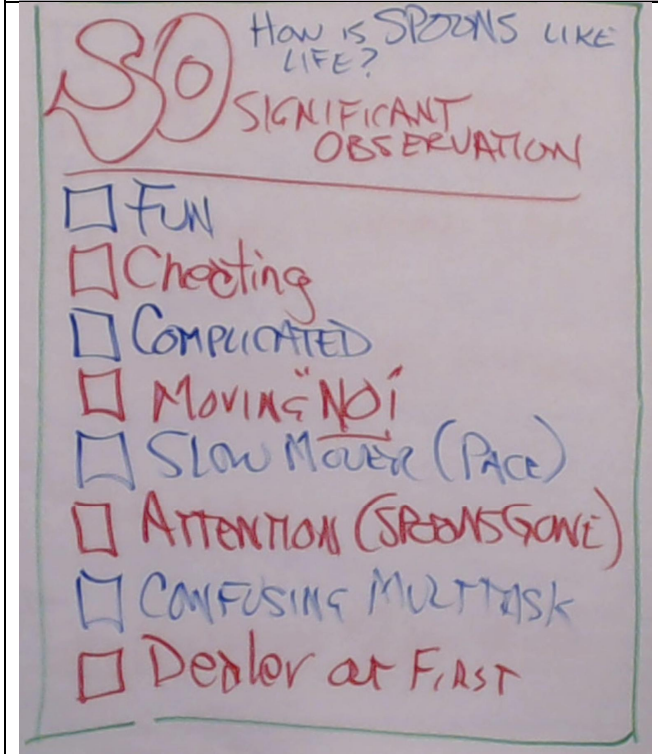 SO
How is SPOONS LIKE
LIFE?
SIGNIFICANT
OBSERVATION
FUN
Cheating
COMPLICATED
MOVING "NO"
SLOW MOVER (PACE)
ATTENTION (SPOONS GONE)
CONFUSING MULTITASK
Dealer at FIRST